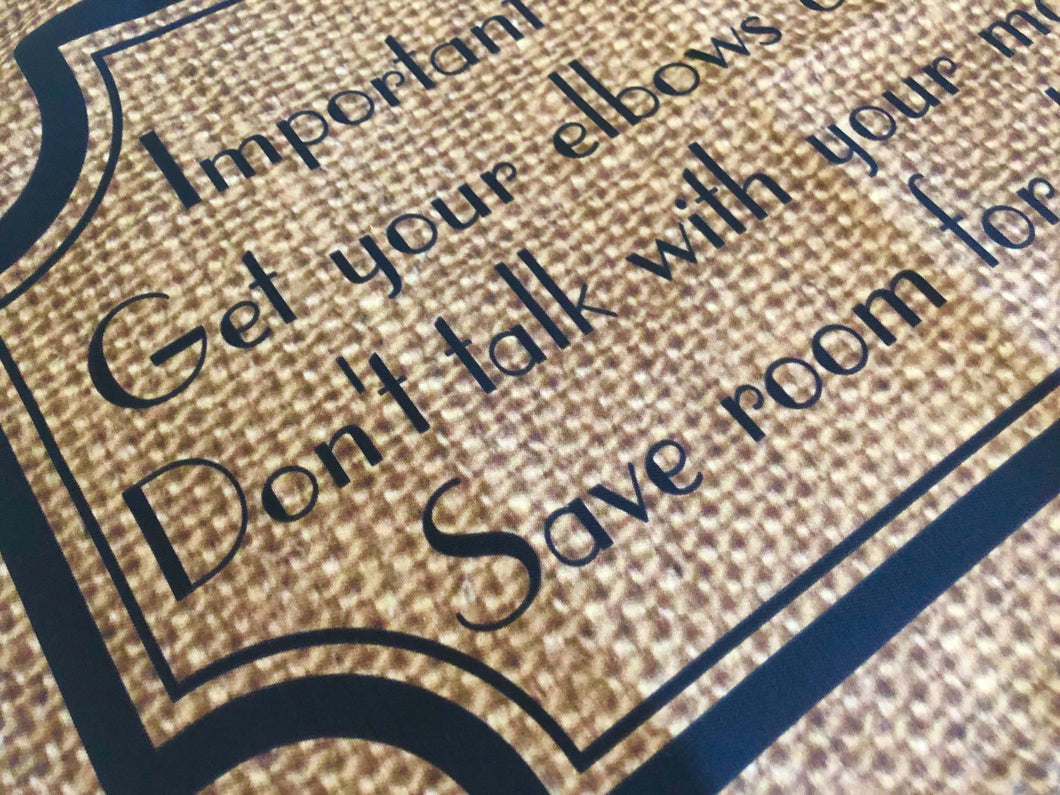 Important
Get your elbows
Don't talk with your
Save room for